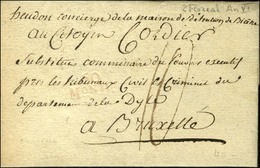 2 floréal An XI
heudon concierge de la maison de détention de Bicêtre
au Citoyen Cordier
Substitut commissaire du pouvoir executif
près les tribunaux Civil et Criminel du
departement de la Dyle
a Bruxelle